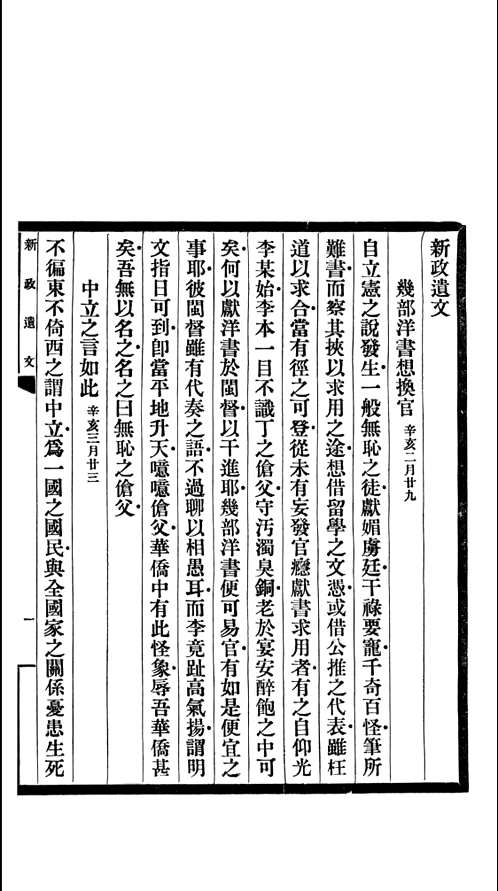 新政遺文
幾部洋書想換官 辛亥二月廿九
自立憲之說發生一般無恥之徒獻媚虜廷干祿要寵千奇百怪筆所
難書而察其挾以求用之途想借留學之文憑或借公推之代表雖枉
道以求合當有徑之可登從未有妄發官癮獻書求用者有之自仰光
李某始李本一目不識丁之傖父守污濁臭銅老於宴安醉飽之中可
矣何以獻洋書於閩督以干進耶幾部洋書便可易官有如是便宜之
事耶彼閩督雖有代奏之語不過聊以相愚耳而李竟趾高氣揚謂明
文指日可到卽當平地升天噫噫傖父華僑中有此怪象辱吾華僑甚
矣吾無以名之名之曰無恥之傖父
中立之言如此 辛亥三月廿三
不偏東不倚西之謂中立爲一國之國民與全國家之關係憂患生死
新政遺文
一